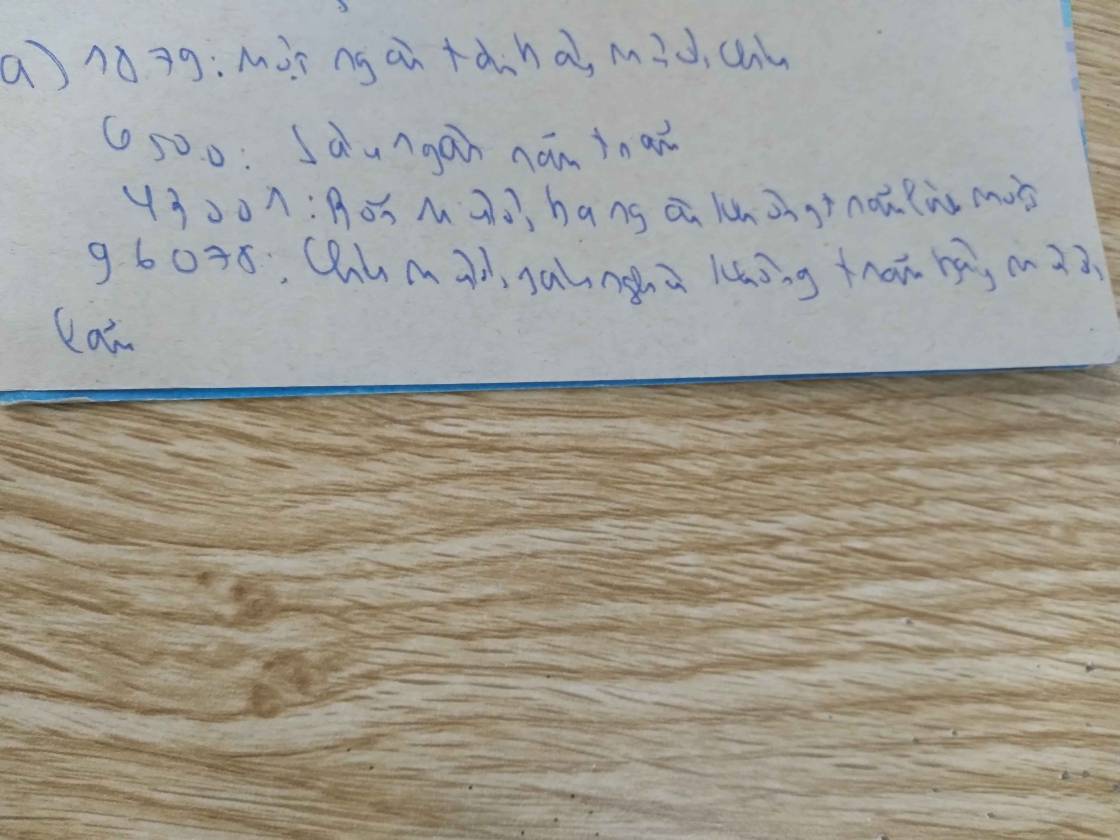 a) 1879: một ngàn tám bảy mươi chín
6500: Sáu ngàn năm trăm
43001: Bốn mươi ba ngàn không trăm linh một
96078: Chín mươi sáu nghìn không trăm bảy mươi
tám